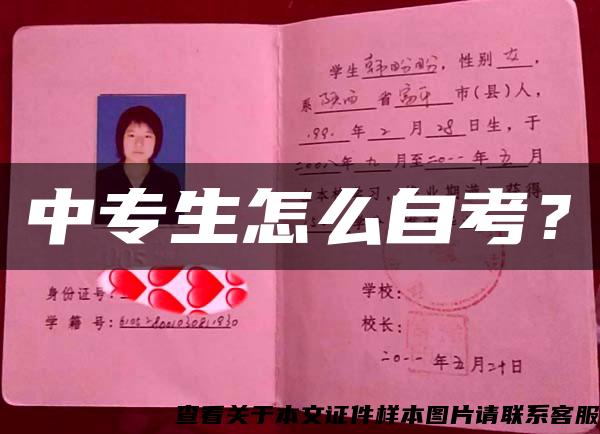 学生韩盼盼，性别女，
系陕西省富平市(县)人，
199 年2月28日生，于
二00八年九月至二0一一年五月
中专生怎么自考？
身份证号：
学籍号：
学校：
校长：
二0一一年五月二十日
查看关于本文证件样本图片请联系客服